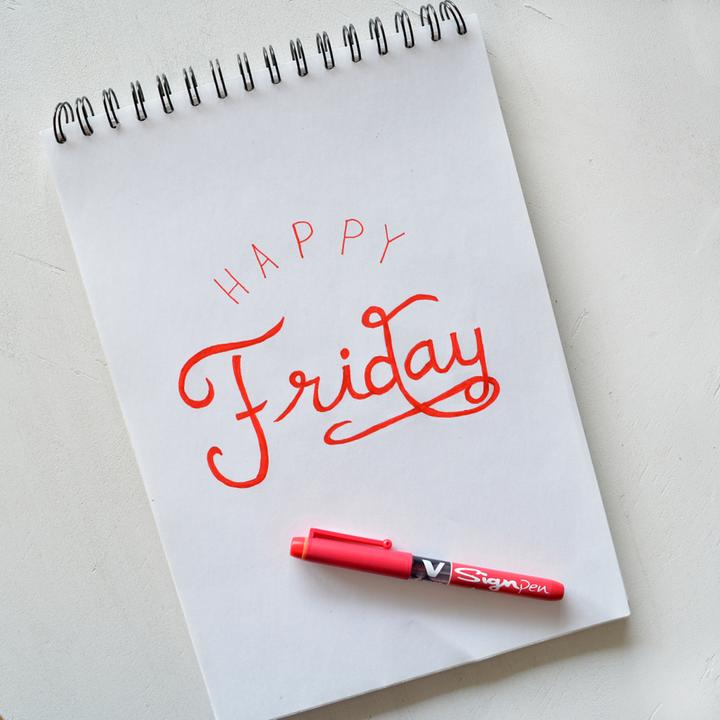 HAPPY
Friday
V Sign pen